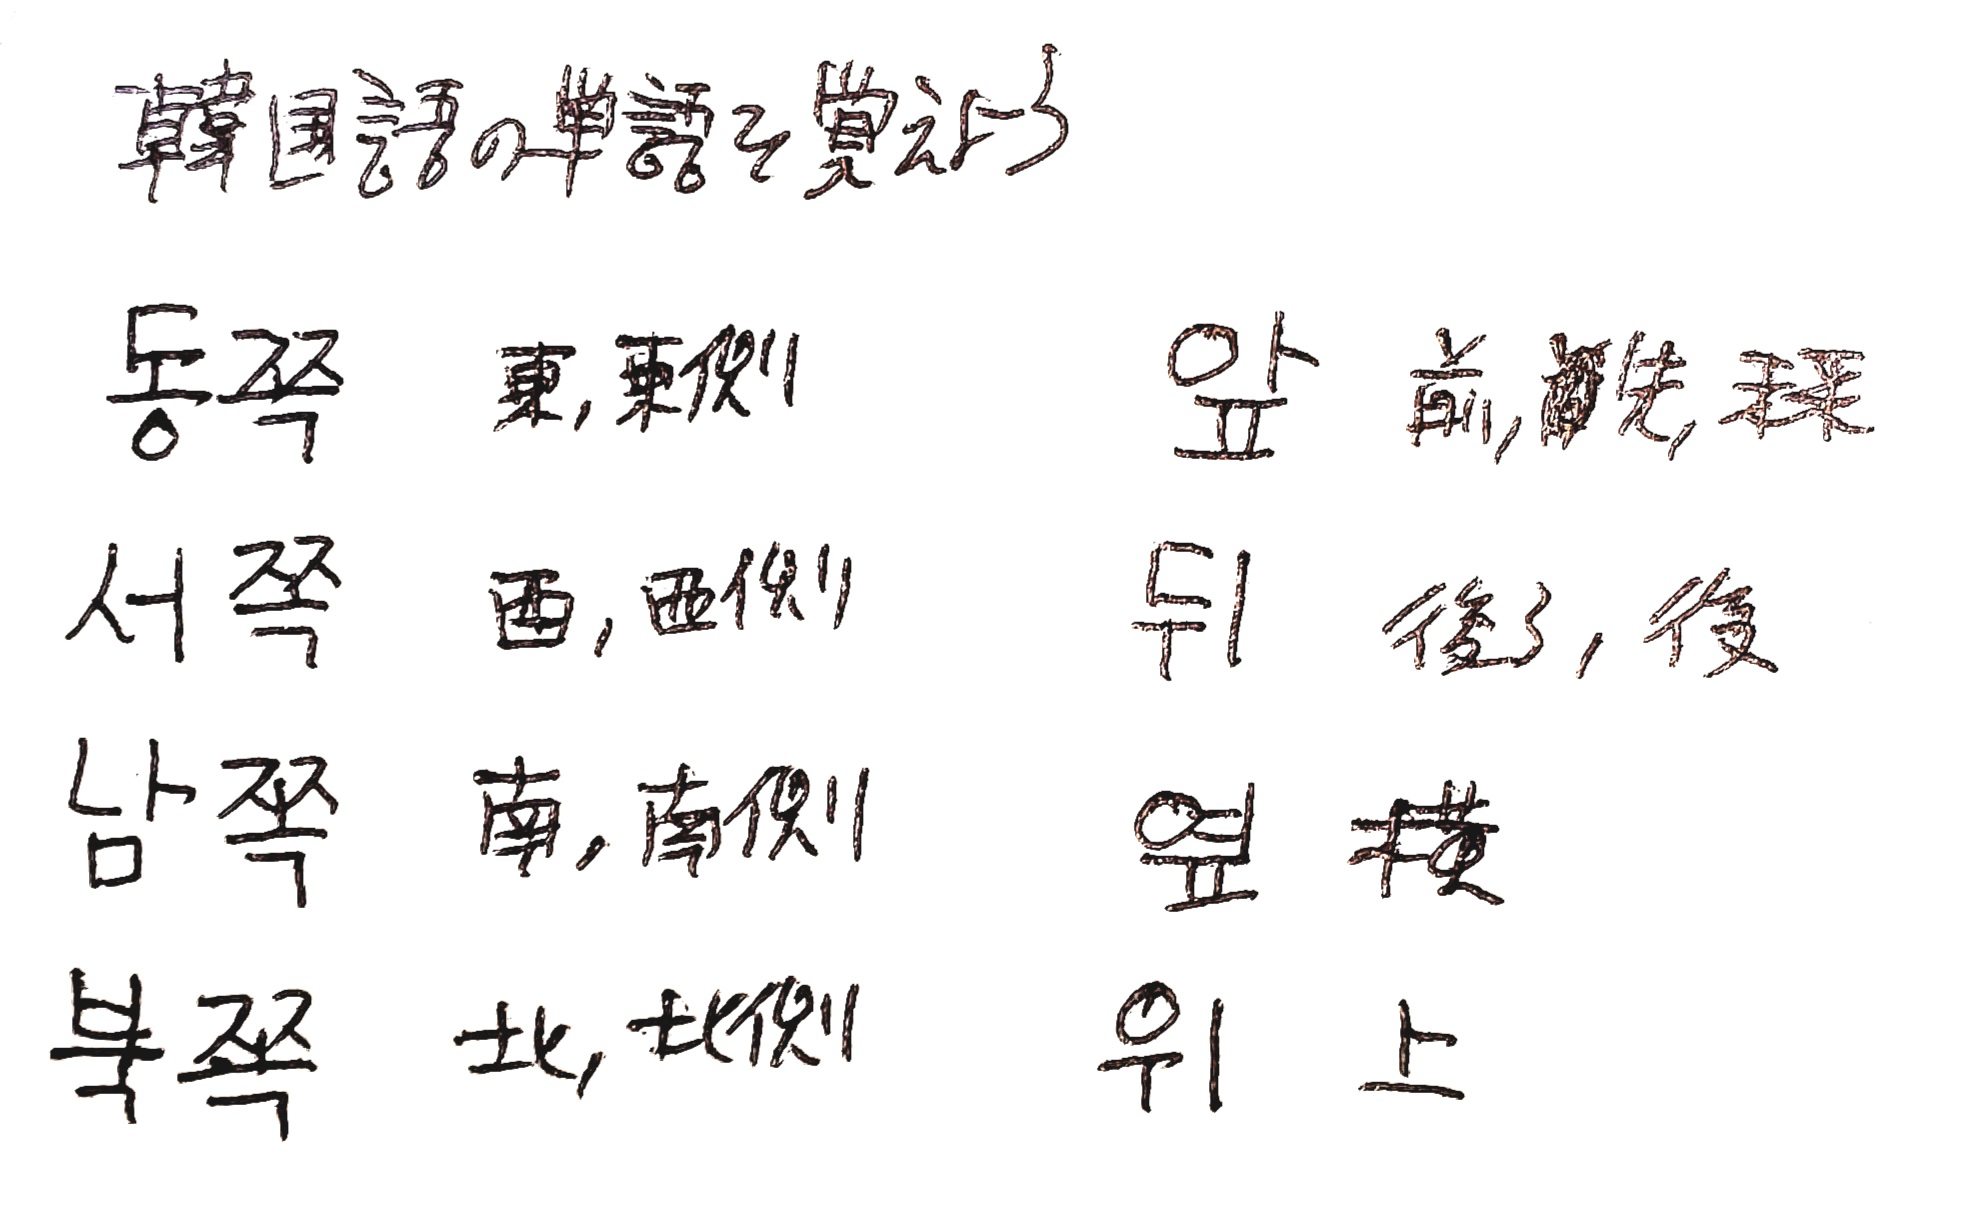 韓国語の単語を覚えよう
동쪽 東, 東側
서쪽 西, 西側
남쪽 南, 南側
북쪽 北, 北側
앞 前, 先,
뒤 後ろ, 後
옆 横
위 上